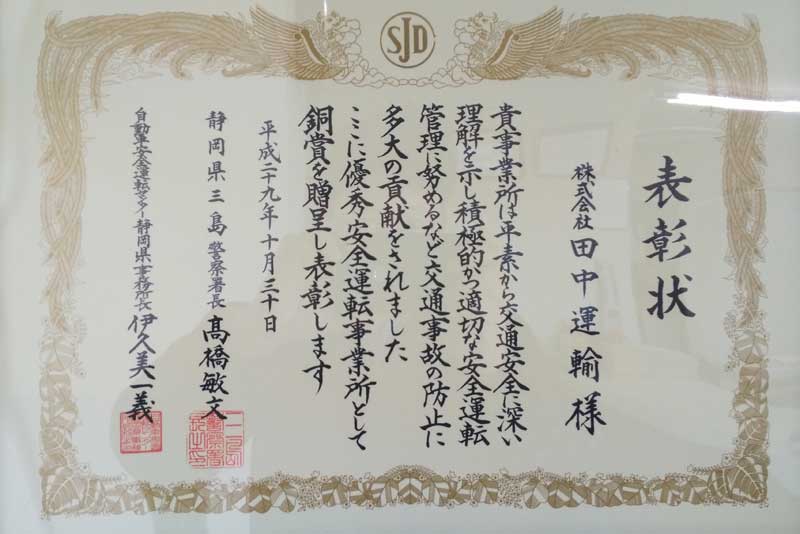 SJD
表彰状
株式会社 田中運輸様
貴事業所は平素から交通安全に深い
理解を示し積極的かつ適切な安全運転
管理に努めるなど交通事故の防止に
多大の貢献をされました
ここに優秀安全運転事業所として
銅賞を贈呈し表彰します
平成二十九年十月三十日
静岡県三島警察署長 髙橋敏文
自動車安全運転センター静岡県事務所長 伊久美一義